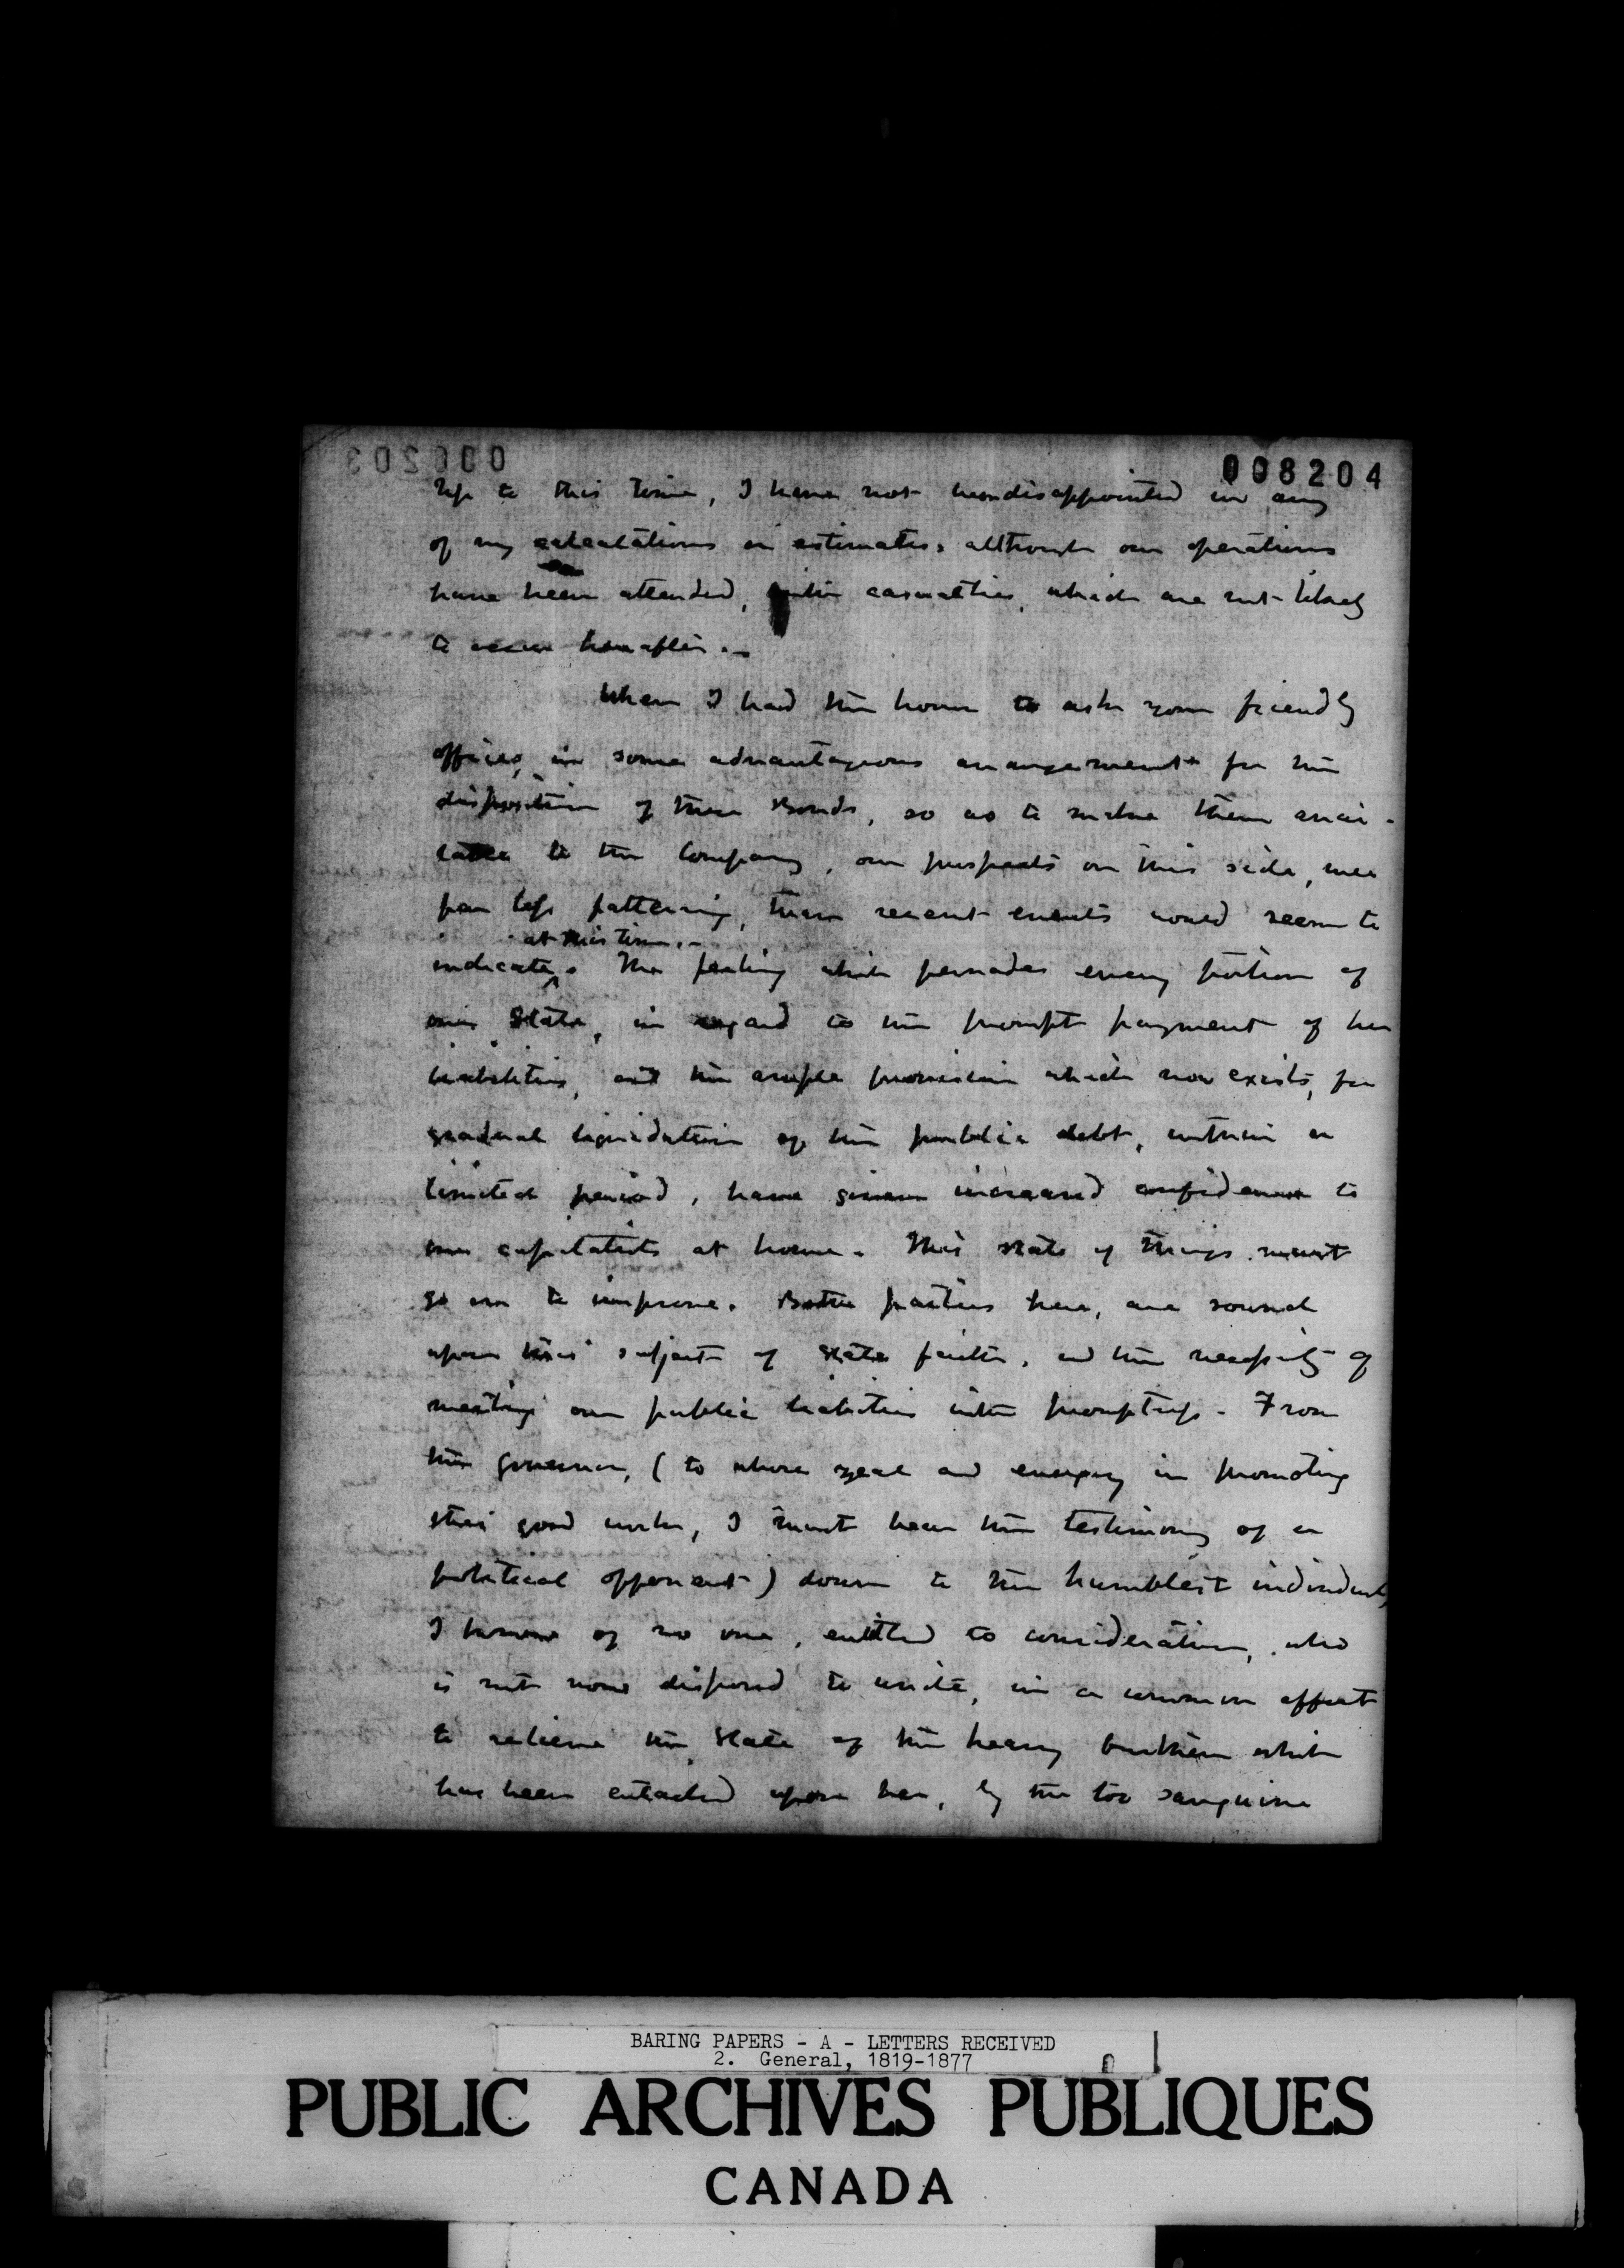 008204
Up to this time, I have not been disappointed in any
of my calculations or estimates, although our operations
have been attended, with casualties, which are not likely
to occur hereafter.—
When I had the honor to ask your friendly
offices, in some advantageous arrangement for the
disposition of these Bonds, so as to make them avai-
lable to the Company, our prospects on this side, were
far less flattering, than recent events would seem to
at this time.—
indicate. The feeling which pervades every portion of
our State, in regard to the prompt payment of her
liabilities, and the ample provision which now exists, for
gradual liquidation of the public debt, within a
limited period, have given increased confidence to
our capitalists at home. This state of things must
go on to improve. Both parties here, are sound
upon this subject of State faith, and the necessity of
meeting our public liabilities with promptness. From
the Governor, (to whose zeal and energy in promoting
this good work, I must bear the testimony of a
political opponent) down to the humblest individual,
I know of no one, entitled to consideration, who
is not now disposed to unite, in a common effort
to relieve the State of the heavy burthen which
has been entailed upon her, by the too sanguine
BARING PAPERS - A - LETTERS RECEIVED
2. General, 1819-1877
PUBLIC ARCHIVES PUBLIQUES
CANADA